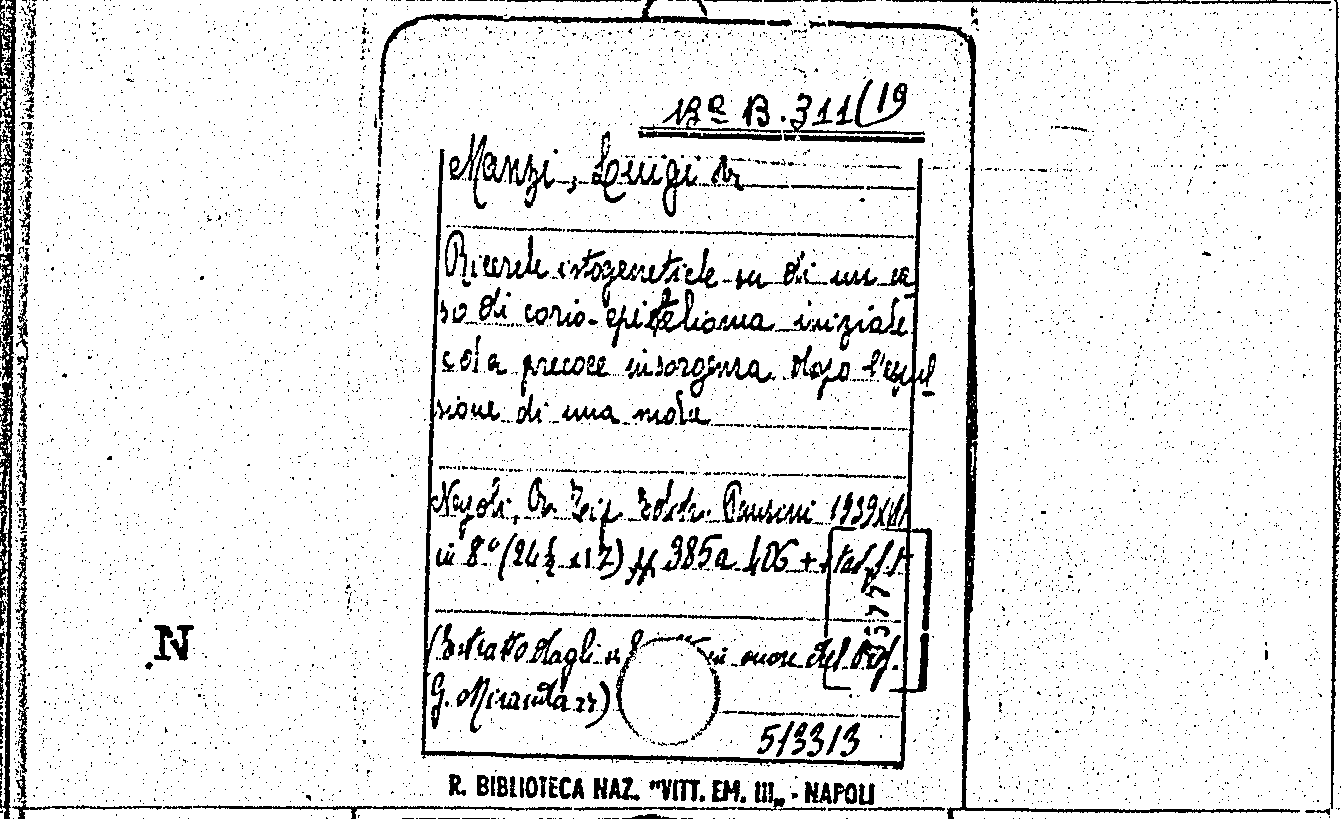 Bª B. 311(19
Manzi, Luigi
Ricerche istogenetiche su di un ca
so di corio-epitelioma iniziale
a precoce insorgenza dopo l'espul
sione di una mola
Napoli, R. Tip. Edit. Pansini 1939 XVII
in 8° (24½ x 17) pp 385 a 406 +
(Estratto dagli in onore del Prof.
G. Miranda »)
513313
R. BIBLIOTECA NAZ. "VITT. EM. III„ - NAPOLI
N